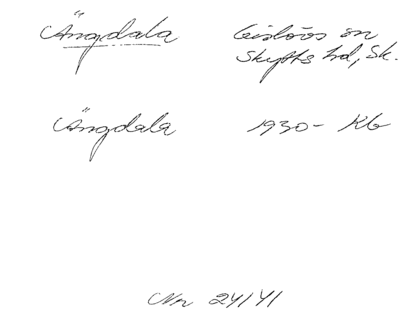 Ängdala Gislövs sn
Skytts hd, Sk.
Ängdala 1930- Kb
Nr 24/41